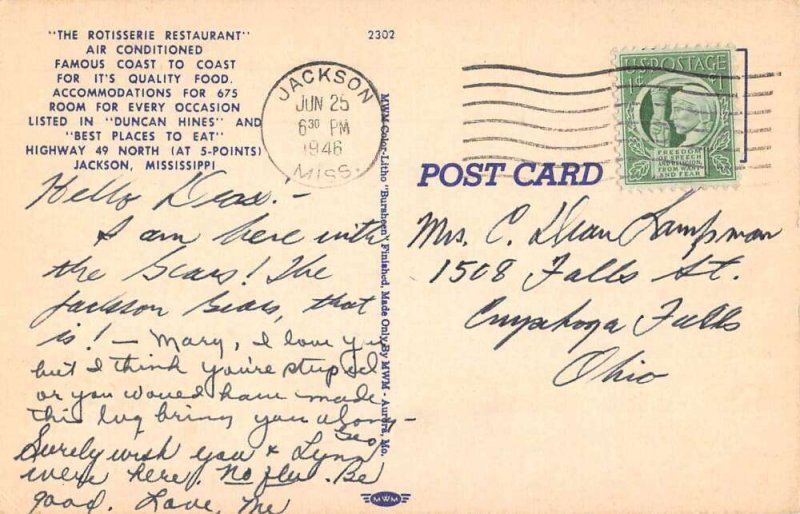 "THE ROTISSERIE RESTAURANT"
AIR CONDITIONED
FAMOUS COAST TO COAST
FOR IT'S QUALITY FOOD.
ACCOMMODATIONS FOR 675
ROOM FOR EVERY OCCASION
LISTED IN "DUNCAN HINES" AND
"BEST PLACES TO EAT"
HIGHWAY 49 NORTH (AT 5-POINTS)
JACKSON, MISSISSIPPI
2302
JACKSON
JUN 25
6 30 PM
1946
MISS.
U.S. POSTAGE
1¢
FREEDOM
OF SPEECH
AND RELIGION,
FROM WANT
AND FEAR
POST CARD
Hello Dear! -
I am here with
the Sears! The
Jackson Sears, that
is! - Mary, I love you
but I think you're stupid
or you would have made
this lug bring you along -
Geo
Surely wish you & Lynn
were here. No flu. Be
good. Love, Me
MWM Color-Litho "Bursheen" Finished, Made Only By MWM - Aurora, Mo.
Mrs. C. Dean Lampman
1508 Falls St.
Cuyahoga Falls
Ohio
MWM